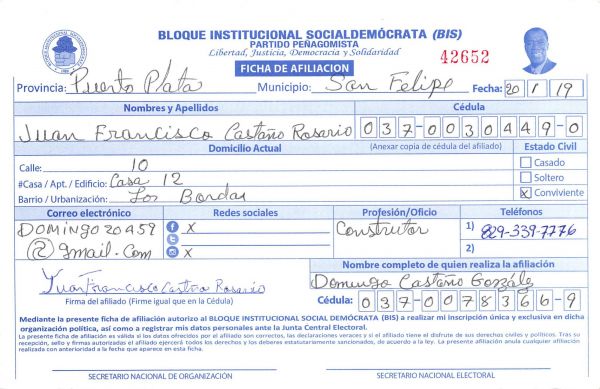 BLOQUE INSTITUCIONAL SOCIALDEMÓCRATA (BIS)
PARTIDO PEÑAGOMISTA
Libertad, Justicia, Democracia y Solidaridad
42652
FICHA DE AFILIACION
Provincia: Puerto Plata Municipio: San Felipe Fecha: 20 / 1 / 19
Nombres y Apellidos Cédula
Juan Francisco Castaño Rosario 037-0030449-0
Domicilio Actual (Anexar copia de cédula del afiliado) Estado Civil
Calle: 10 Casado
#Casa / Apt. / Edificio: Casa 12 Soltero
Barrio / Urbanización: Los Bordas X Conviviente
Correo electrónico Redes sociales Profesión/Oficio Teléfonos
DOMINGO20459 X Construtor 1) 829-339-7776
@gmail.com X 2)
Nombre completo de quien realiza la afiliación
Juan Francisco Castro Rosario Domingo Castaño Gonzále
Firma del afiliado (Firme igual que en la Cédula) Cédula: 037-0078366-9
Mediante la presente ficha de afiliación autorizo al BLOQUE INSTITUCIONAL SOCIAL DEMÓCRATA (BIS) a realizar mi inscripción única y exclusiva en dicha
organización política, así como a registrar mis datos personales ante la Junta Central Electoral.
La presente ficha de afiliación es válida si los datos ofrecidos por el afiliado son correctos, las declaraciones veraces y si el afiliado tiene el disfrute de sus derechos civiles y políticos. Tras su
recepción, sello y firmas autorizadas el afiliado ejercerá todos los derechos y los deberes estatutariamente sancionados, de acuerdo a la ley. La presente afiliación anula cualquier afiliación
realizada con anterioridad a la fecha que aparece en esta ficha.
SECRETARIO NACIONAL DE ORGANIZACIÓN SECRETARIO NACIONAL ELECTORAL